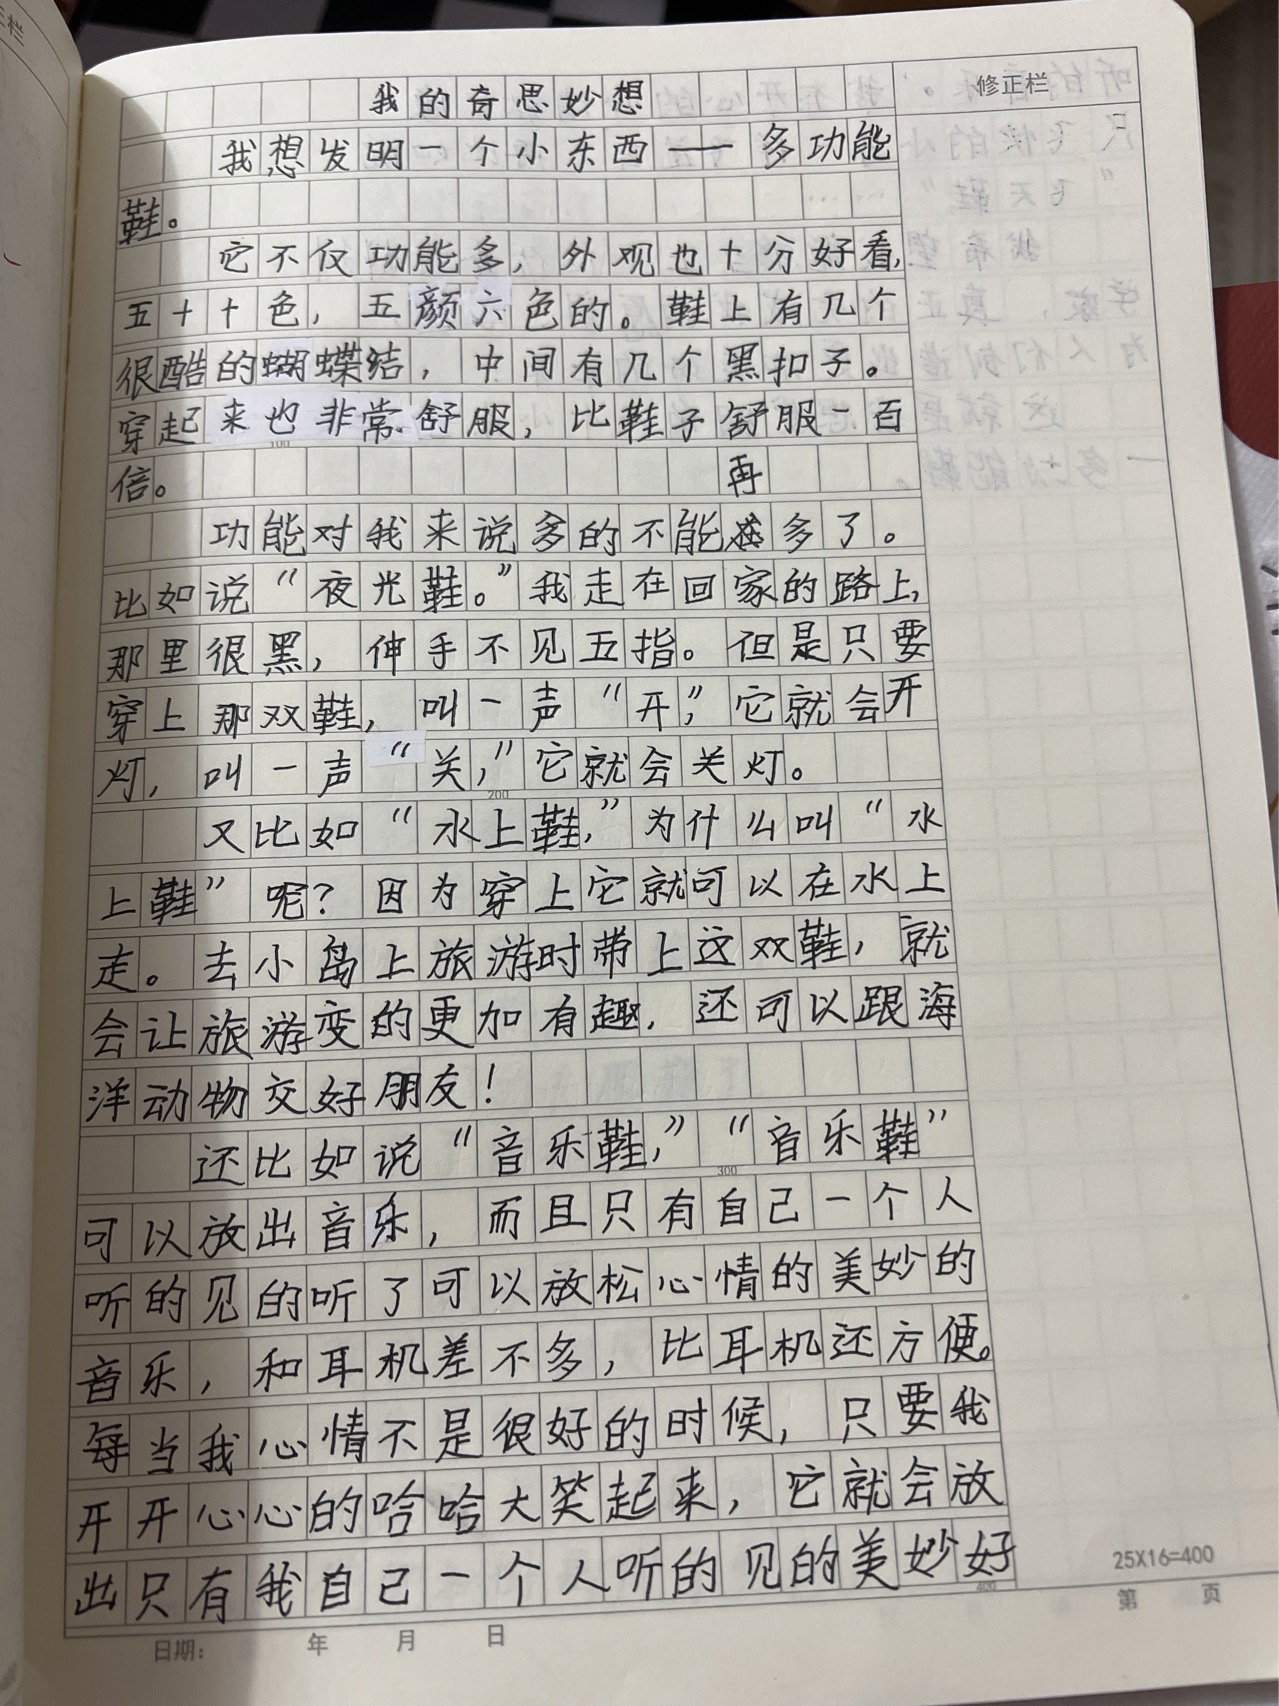 修正栏
我的奇思妙想
我想发明一个小东西——多功能
鞋。
它不仅功能多，外观也十分好看，
五十十色，五颜六色的。鞋上有几个
很酷的蝴蝶结，中间有几个黑扣子。
穿起来也非常舒服，比鞋子舒服一百
倍。
再
功能对我来说多的不能多了。
比如说“夜光鞋。”我走在回家的路上，
那里很黑，伸手不见五指。但是只要
穿上那双鞋，叫一声“开，”它就会开
灯，叫一声“关，”它就会关灯。
又比如“水上鞋，”为什么叫“水
上鞋”呢？因为穿上它就可以在水上
走。去小岛上旅游时带上这双鞋，就
会让旅游变的更加有趣，还可以跟海
洋动物交好朋友！
还比如说“音乐鞋，”“音乐鞋”
可以放出音乐，而且只有自己一个人
听的见的听了可以放松心情的美妙的
音乐，和耳机差不多，比耳机还方便。
每当我心情不是很好的时候，只要我
开开心心的哈哈大笑起来，它就会放
出只有我自己一个人听的见的美妙好
100
200
300
400
25X16=400
第 页
日期： 年 月 日